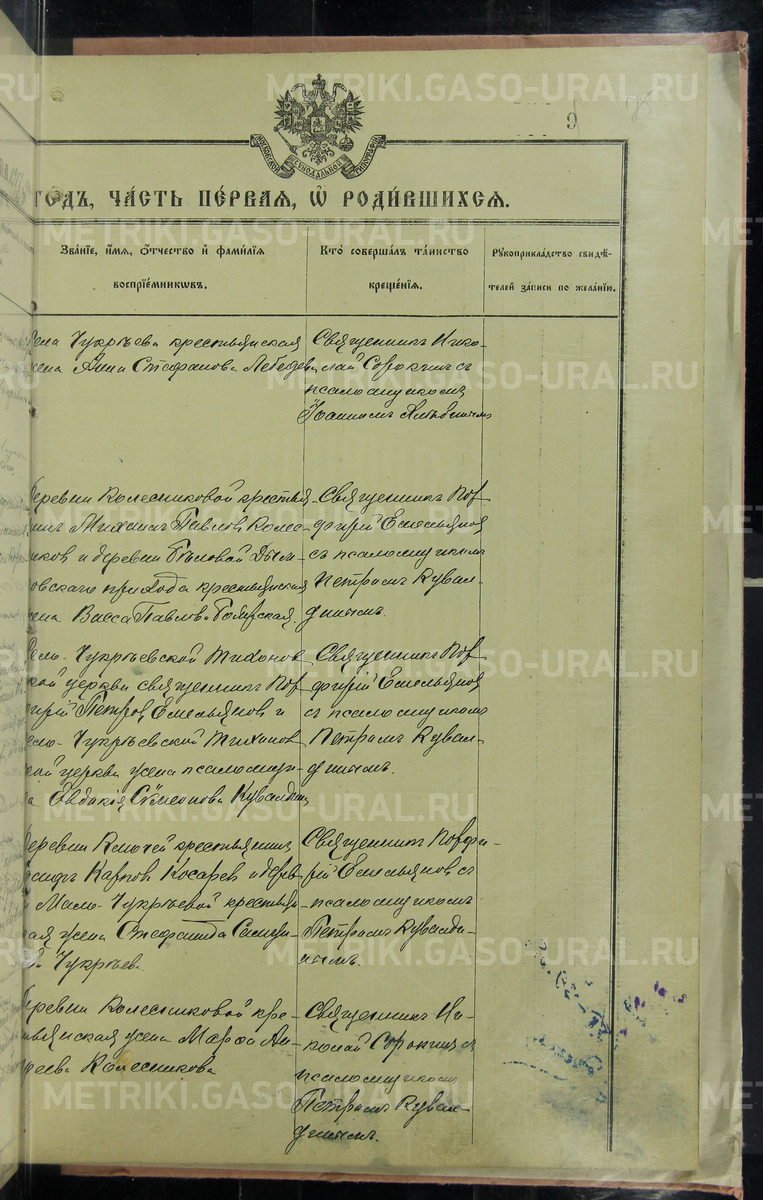 METRIKI.GASO-URAL.RU
9
МОСКОВСКОЙ СѴНОДАЛЬНОЙ ТИПОГРАФІИ
ГОДЪ, ЧАСТЬ ПЕРВАЯ, Ѡ РОДИВШИХСЯ.
ЗВАНІЕ, ИМЯ, ОТЧЕСТВО И ФАМИЛІЯ ВОСПРІЕМНИКѠВЪ.
КТО СОВЕРШАЛЪ ТАИНСТВО КРЕЩЕНІЯ.
РУКОПРИКЛАДСТВО СВИДѢТЕЛЕЙ ЗАПИСИ ПО ЖЕЛАНІЮ.
села Чукрѣева крестьянская
жена Анна Стефанова Лебедева
Священникъ Нико-
лай Сорокинъ съ
псаломщикомъ
Іоанномъ
METRIKI.GASO-URAL.RU
Деревни Колесниковой крестья-
нинъ Михаилъ Павловъ Колес-
никовъ и деревни
прихода крестьянская
жена Васса Павлова Боярская
Священникъ Пор-
фирій Емельяновъ
съ псаломщикомъ
Петромъ Кувал-
динымъ.
METRIKI.GASO-URAL.RU
Мало-Чукрѣевской Тихонов-
ской церкви священникъ Пор-
фирій Петровъ Емельяновъ и
Мало-Чукрѣевской Тихонов-
ской церкви жена псаломщи-
ка Евдокія Сѵмеонова Кувалдина
Священникъ Пор-
фирій Емельяновъ
съ псаломщикомъ
Петромъ Кувал-
динымъ.
METRIKI.GASO-URAL.RU
Деревни Ключей крестьянинъ
Карповъ Косаревъ и дерев-
ни Мало-Чукрѣевой крестьян-
ская жена Стефанида
Чукрѣева
Священникъ Порфи-
рій Емельяновъ съ
псаломщикомъ
Петромъ Кувалди-
нымъ.
METRIKI.GASO-URAL.RU
Деревни Колесниковой кре-
стьянская жена Марѳа Ан-
дреева Колесникова
Священникъ Ни-
колай Сорокинъ съ
псаломщикомъ
Петромъ Кувал-
динымъ.
METRIKI.GASO-URAL.RU